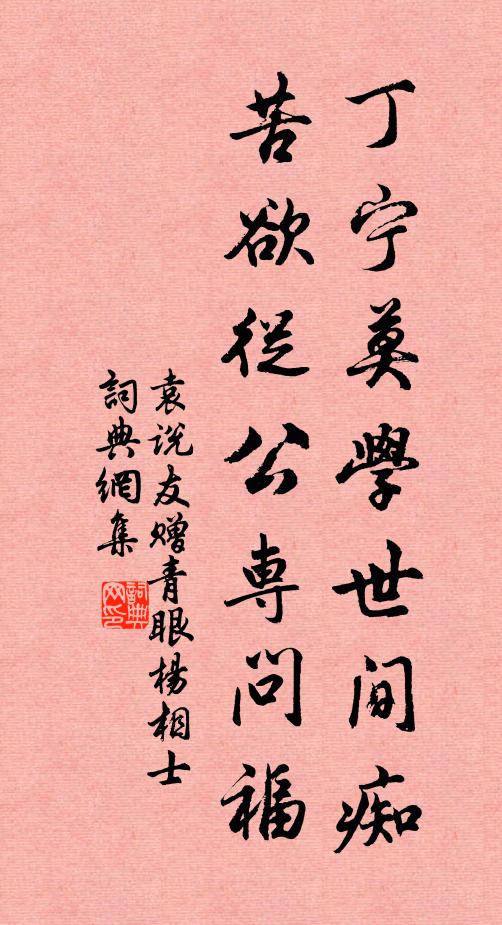 丁宁莫學世間痴
苦欲從公專問福
袁说友赠青眼楊相士
詞典網集
詞典网印